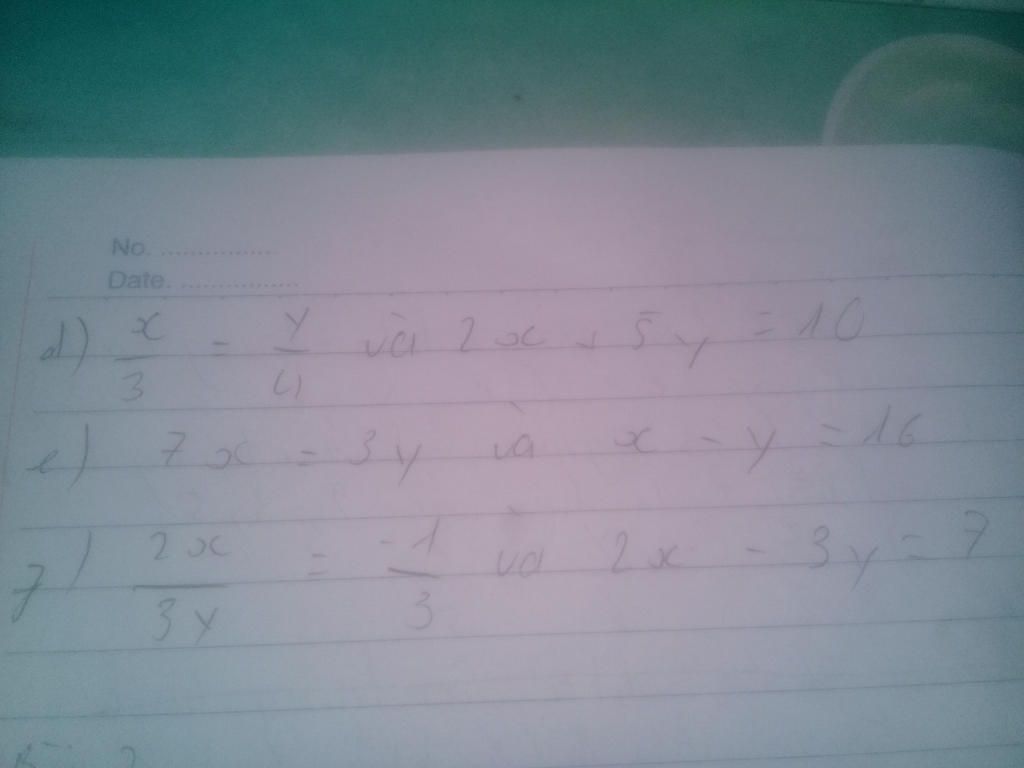 No. ................
Date. ................
d) x/3 = y/4 và 2x + 5y = 10
e) 7x = 3y và x - y = 16
f) 2x/3y = -1/3 và 2x - 3y = 7